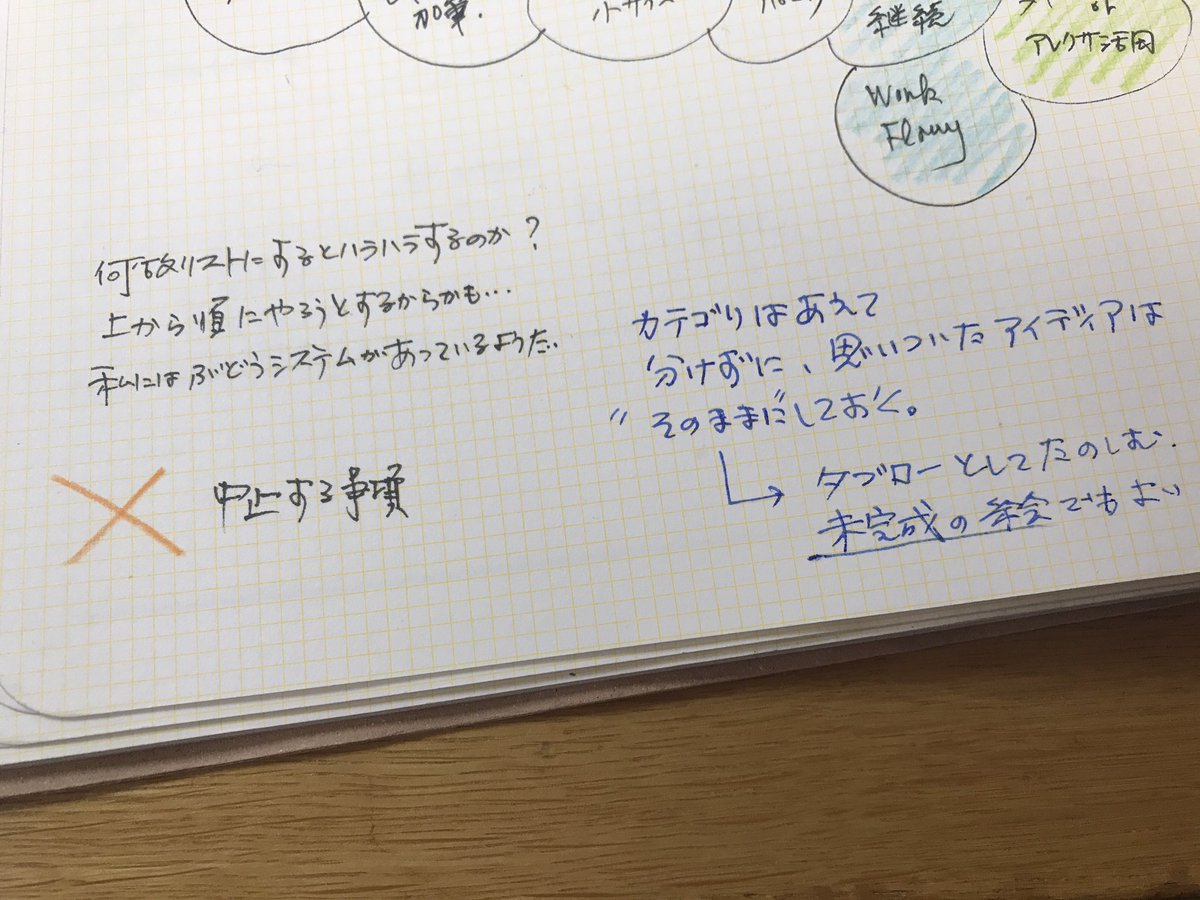 加筆.
小サイズ
継続
or
アレクサ活用
Work
Flowy
何故リストにするとハラハラするのか?
上から順にやろうとするからかも…
私にはぶどうシステムがあっているようだ.
カテゴリはあえて
分けずに、思いついたアイディアは
"そのままに"しておく。
タブローとしてたのしむ.
未完成の絵でもよい
中止する事項